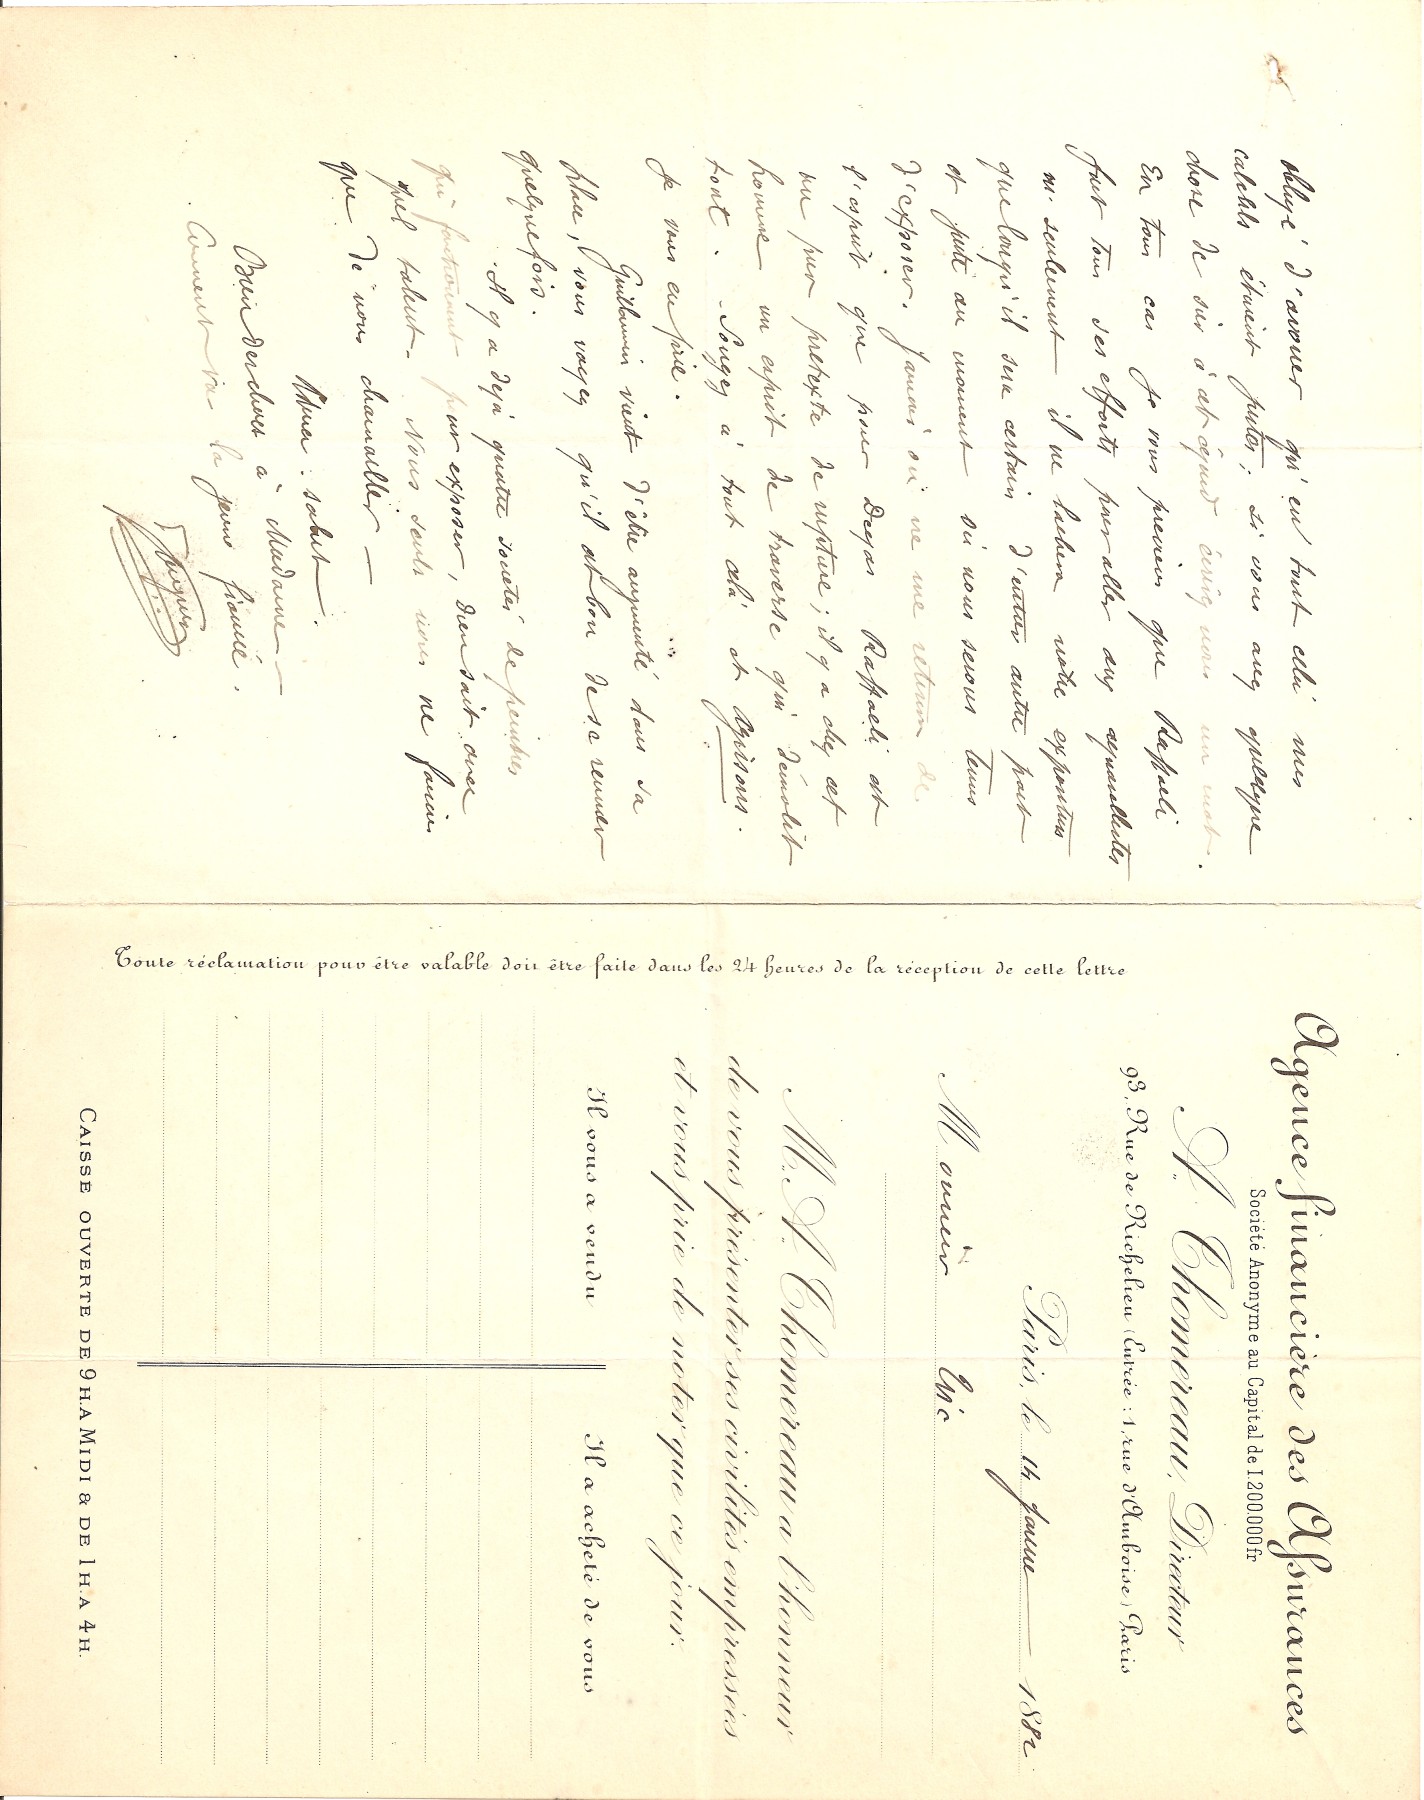 obligé d'avouer qu'en tout celà mes
calculs étaient justes; si vous avez quelque
chose de sûr à cet égard écrivez moi un mot.
En tous cas je vous préviens que Raffaeli
fait tous ses efforts pour aller aux aquarellistes
seulement il ne lachera notre exposition
que lorsqu'il sera certain d'entrer autre part
et juste au moment où nous serons tenus
d'exposer. Jamais on ne me retirera de
l'esprit que pour Degas Raffaeli est
un pur prétexte de rupture; il y a chez cet
homme un esprit de travers qui démolit
tout. Songez à tout celà et agissons.
Je vous en prie.
Guillaumin vient d'être augmenté dans sa
place, vous voyez qu'il est bon de se remuer
quelquefois.
Il y a déjà quatre sociétés de peintres
qui fonctionnent pour exposer, Dieu sait avec
quel talent. Nous seuls nous ne faisons
que de nous chamailler —
Amer: salut.
Bien des choses à Madame —
Comment va la jeune fiancé.
Gauguin
Toute réclamation pour être valable doit être faite dans les 24 heures de la réception de cette lettre
Agence Financière des Assurances
Société Anonyme au Capital de 1.200.000 fr
A. Thomereau, Directeur
93, Rue de Richelieu (Entrée: 1, rue d'Amboise) Paris
Paris, le 14 Janvier 1882
M
M. A. Thomereau a l'honneur
de vous présenter ses civilités empressées
et vous prie de noter que ce jour:
Il vous a vendu
Il a acheté de vous
CAISSE OUVERTE DE 9 H. A MIDI & DE 1 H. A 4 H.